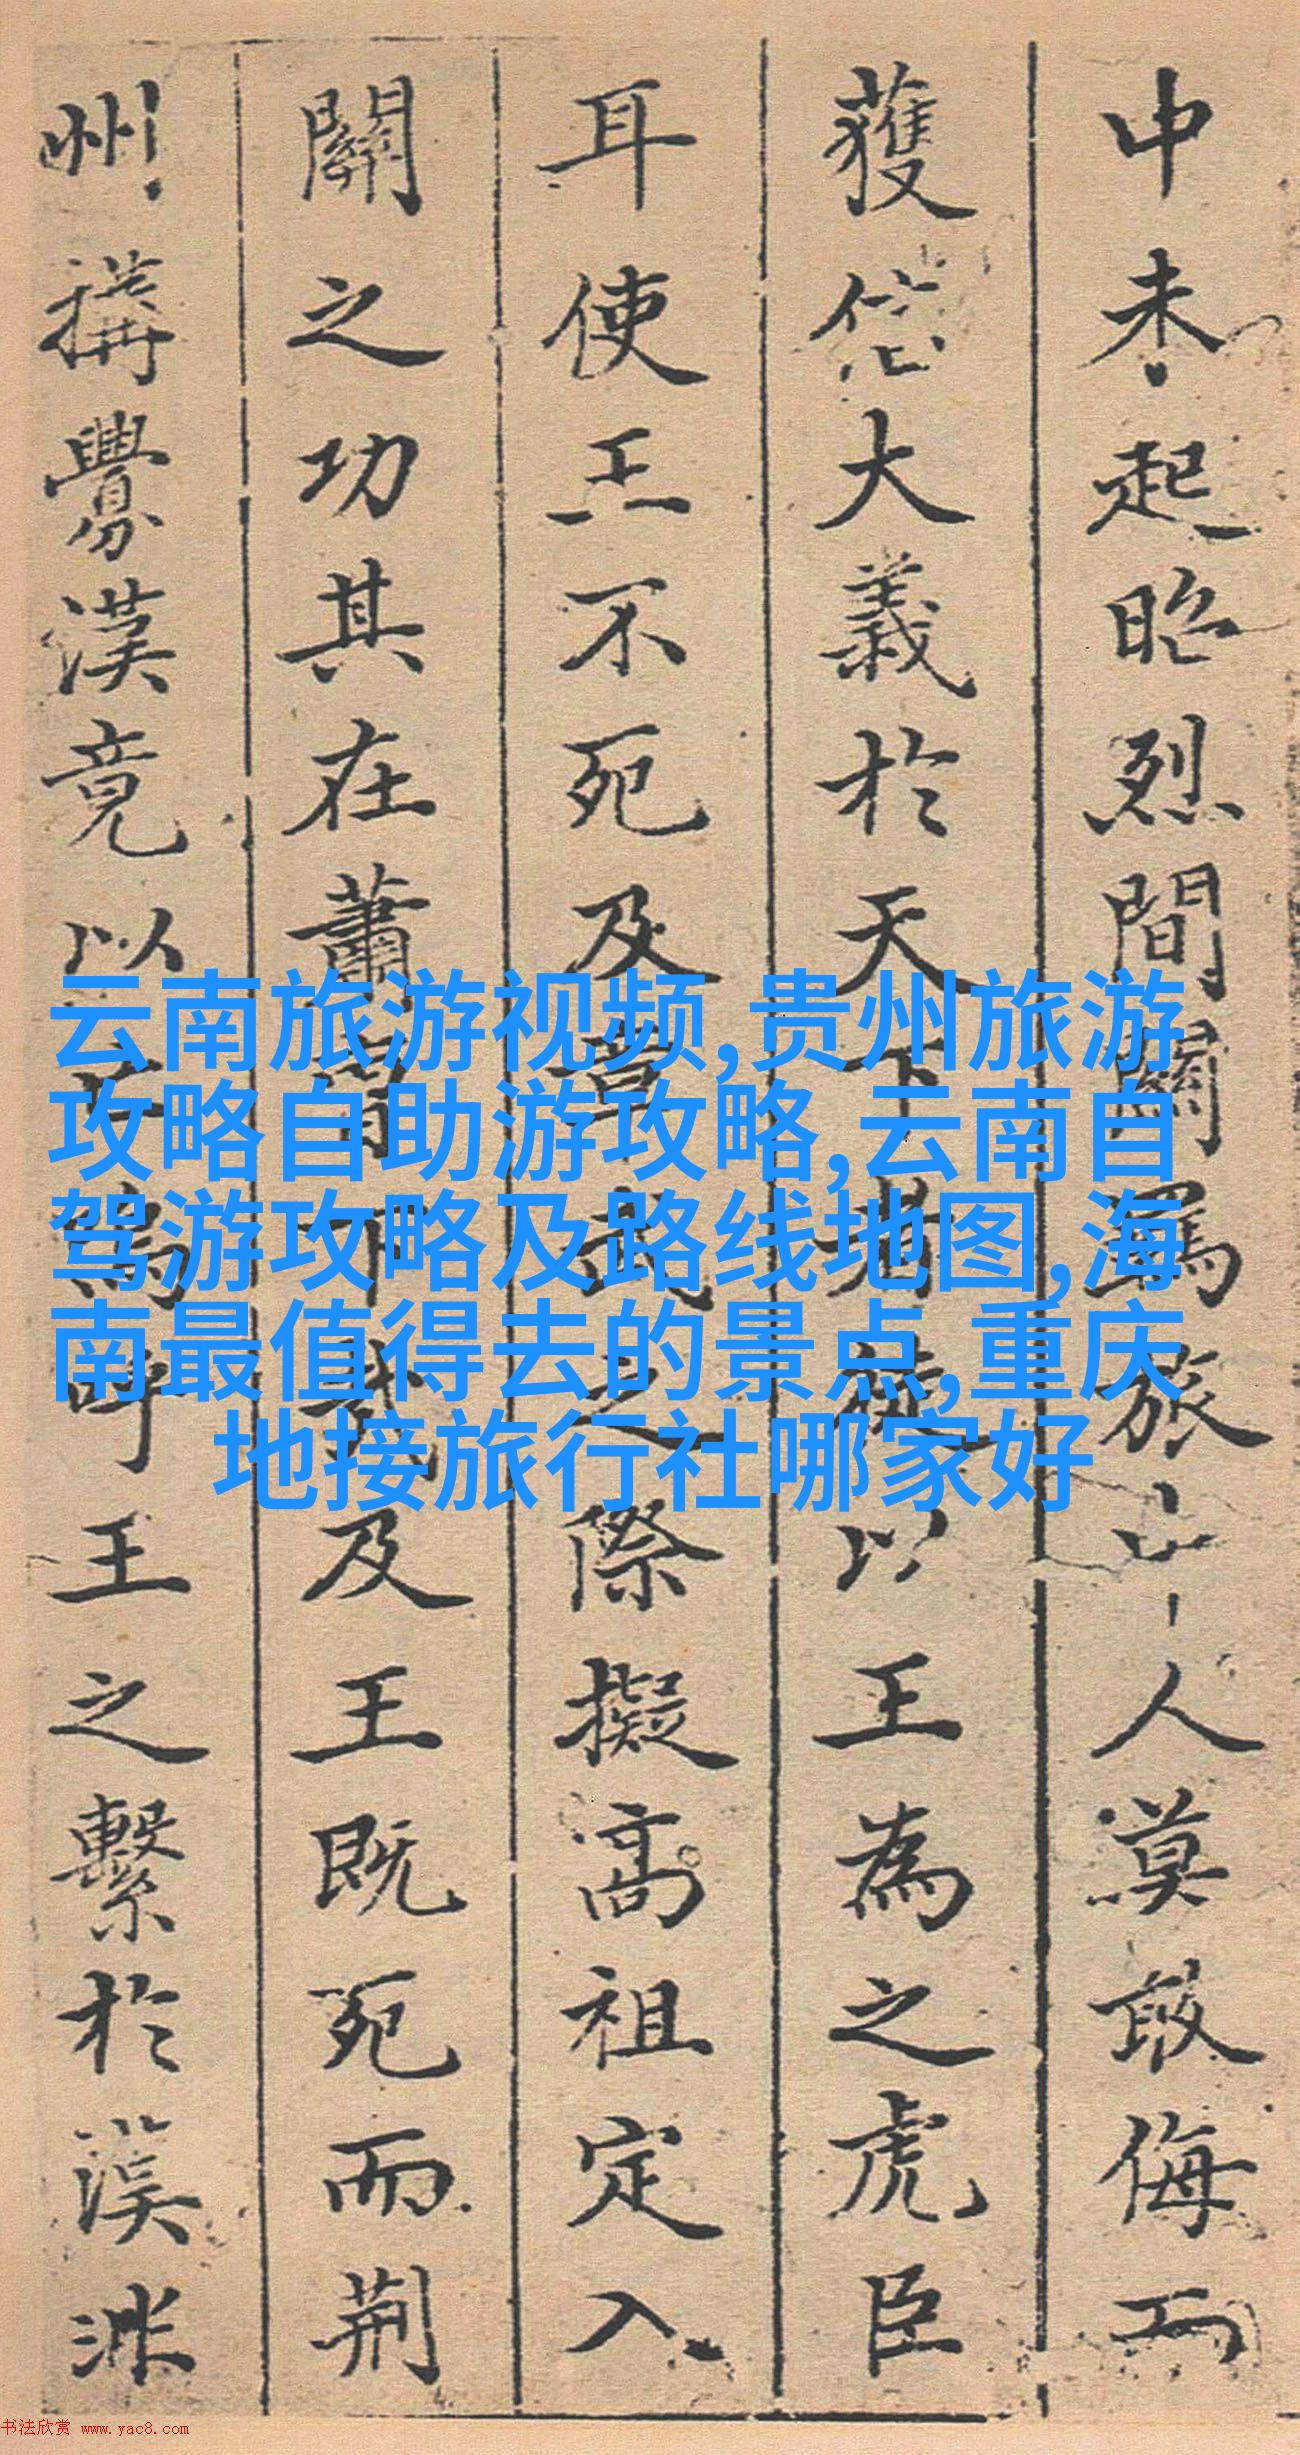 中未起昭烈間關羈旅人莫敢侮而
獲信大義於天下者徒以王為之虎臣
耳使王不死及章武之際擬高祖定入
關之功其在蕭曹下哉及王既死而荆
州搆釁漢竟以亡焉呼王之繫於漢
云南旅游视频,贵州旅游
攻略自助游攻略,云南自
驾游攻略及路线地图,海
南最值得去的景点,重庆
地接旅行社哪家好
书法欣赏 www.yac8.com